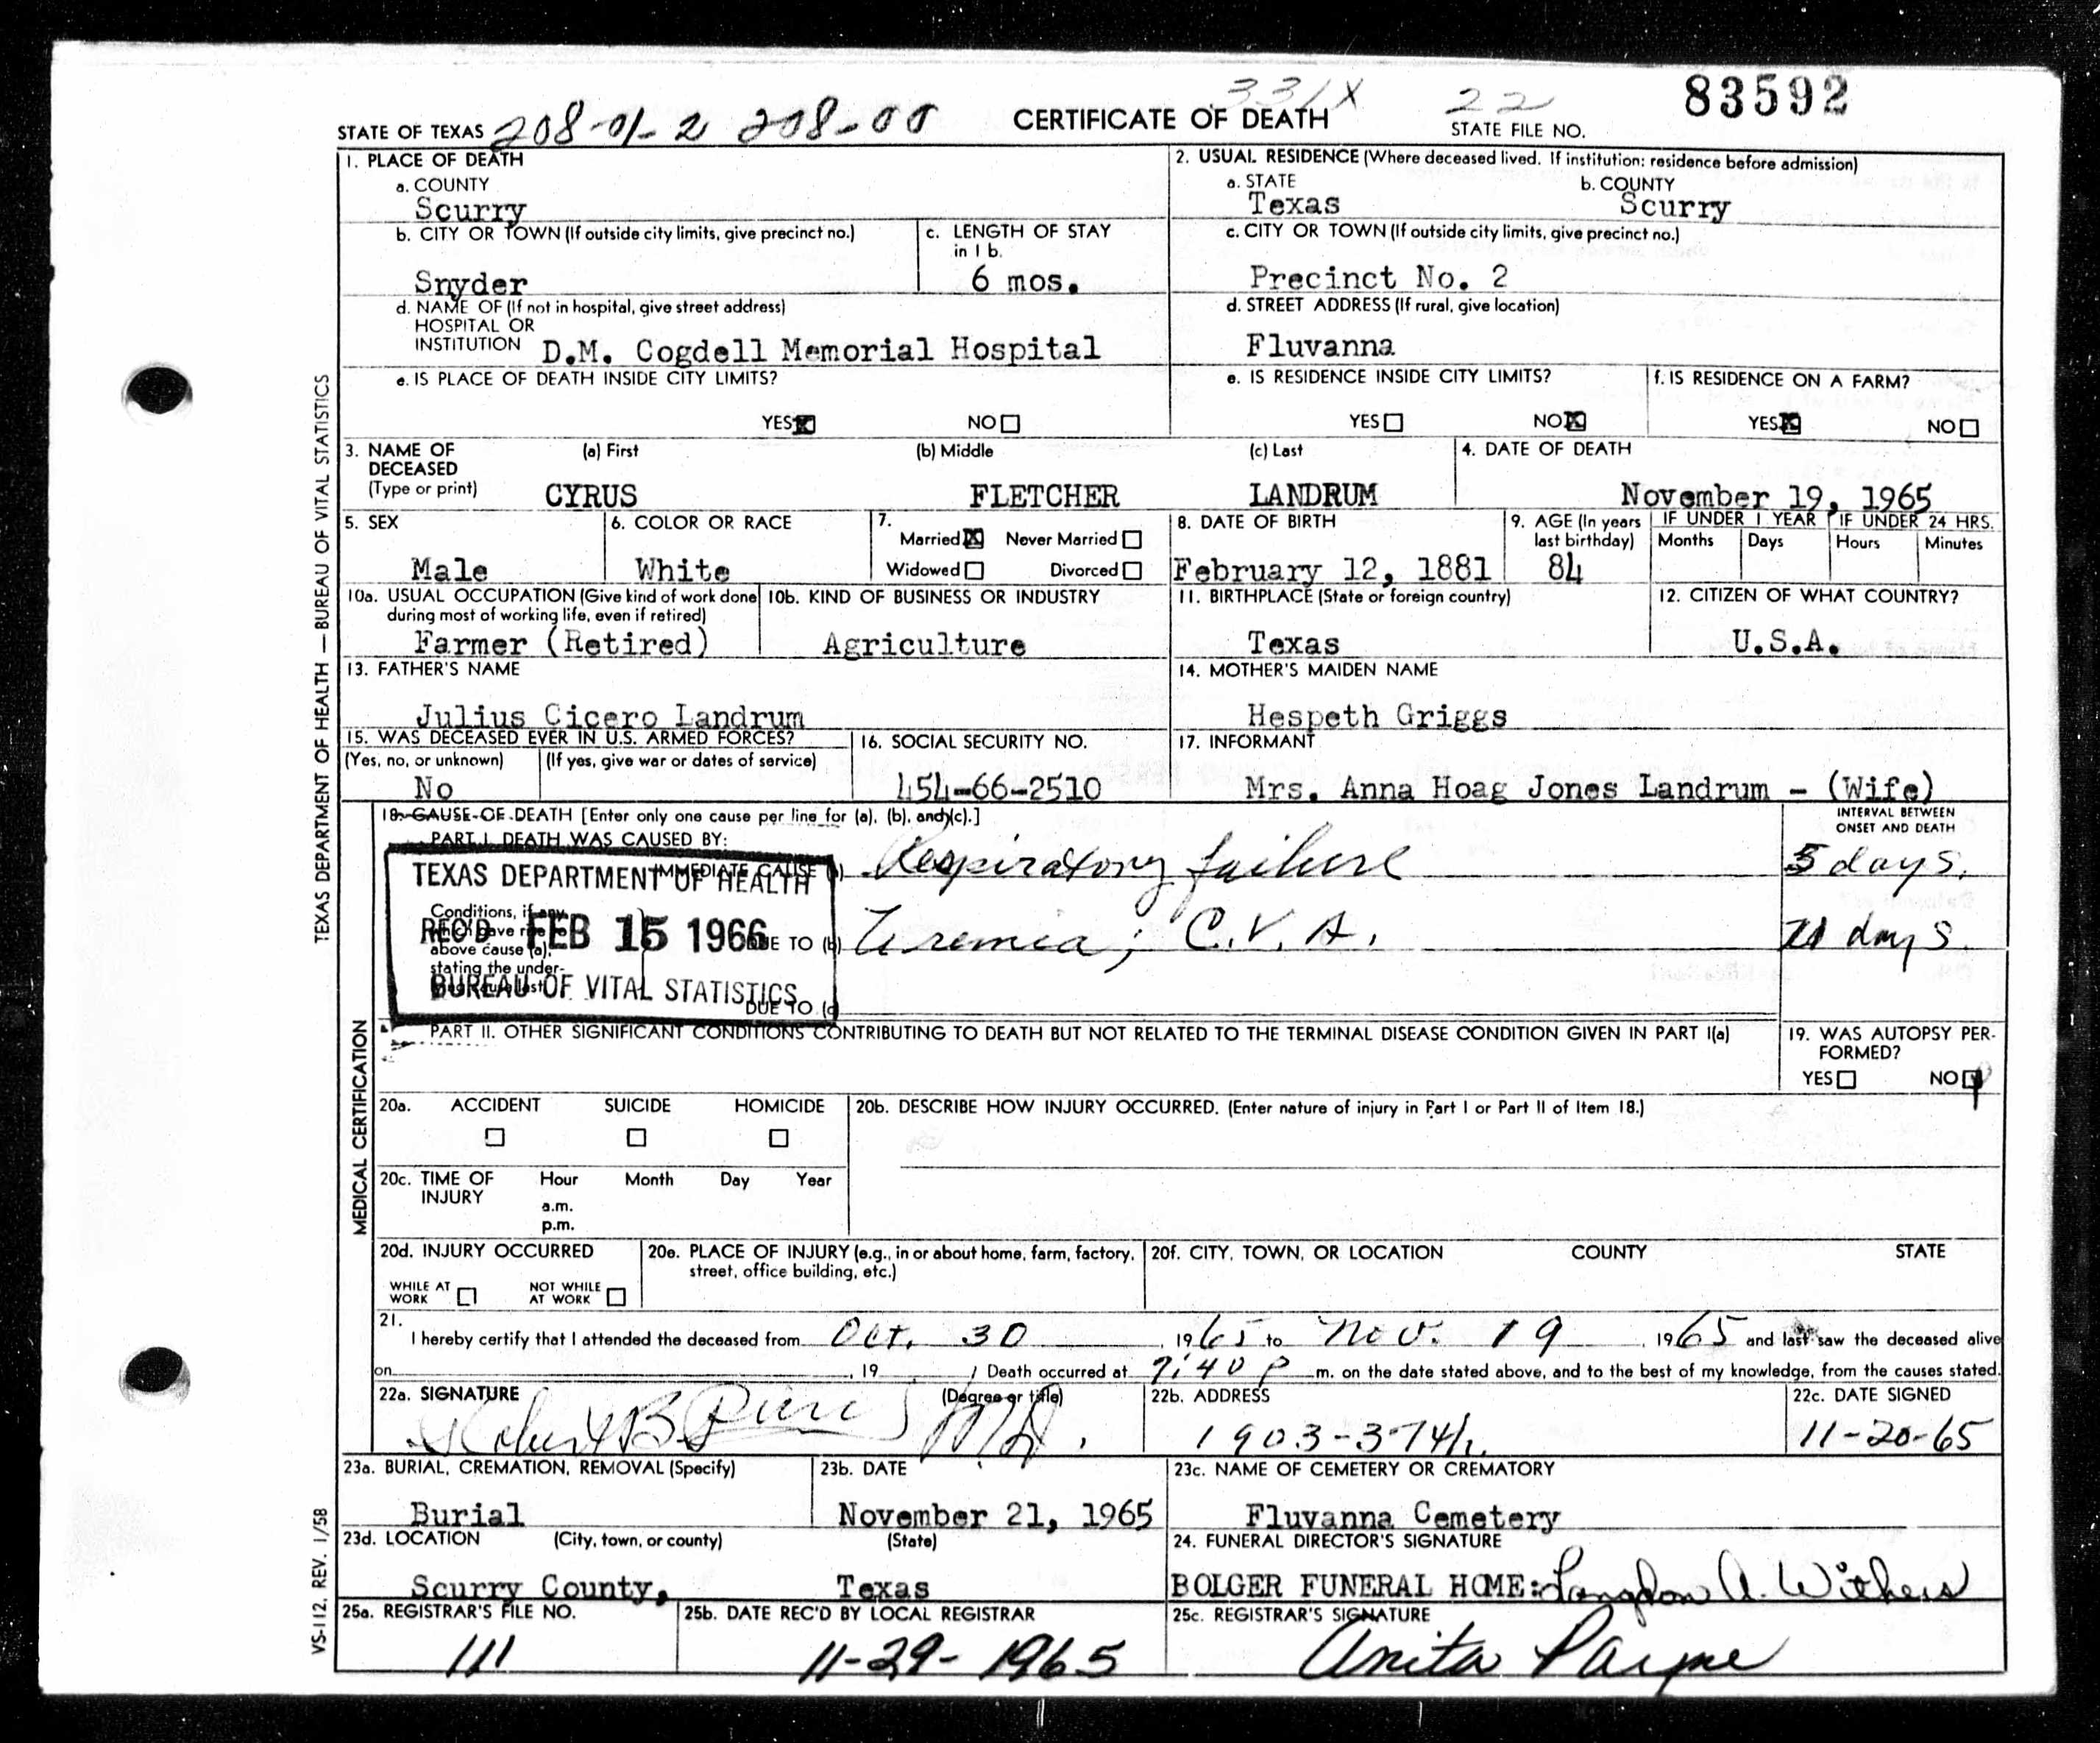 331X 22 83592
STATE OF TEXAS 208-01-2 208-00 CERTIFICATE OF DEATH STATE FILE NO.
1. PLACE OF DEATH
a. COUNTY
Scurry
2. USUAL RESIDENCE (Where deceased lived. If institution: residence before admission)
a. STATE b. COUNTY
Texas Scurry
b. CITY OR TOWN (If outside city limits, give precinct no.)
Snyder
c. LENGTH OF STAY
in 1 b.
6 mos.
c. CITY OR TOWN (If outside city limits, give precinct no.)
Precinct No. 2
d. NAME OF (If not in hospital, give street address)
HOSPITAL OR
INSTITUTION D.M. Cogdell Memorial Hospital
d. STREET ADDRESS (If rural, give location)
Fluvanna
e. IS PLACE OF DEATH INSIDE CITY LIMITS?
YES NO
e. IS RESIDENCE INSIDE CITY LIMITS?
YES NO
f. IS RESIDENCE ON A FARM?
YES NO
3. NAME OF (a) First (b) Middle (c) Last
DECEASED
(Type or print) CYRUS FLETCHER LANDRUM
4. DATE OF DEATH
November 19, 1965
5. SEX
Male
6. COLOR OR RACE
White
7.
Married Never Married
Widowed Divorced
8. DATE OF BIRTH
February 12, 1881
9. AGE (In years
last birthday)
84
IF UNDER 1 YEAR IF UNDER 24 HRS.
Months Days Hours Minutes
10a. USUAL OCCUPATION (Give kind of work done
during most of working life, even if retired)
Farmer (Retired)
10b. KIND OF BUSINESS OR INDUSTRY
Agriculture
11. BIRTHPLACE (State or foreign country)
Texas
12. CITIZEN OF WHAT COUNTRY?
U.S.A.
13. FATHER'S NAME
Julius Cicero Landrum
14. MOTHER'S MAIDEN NAME
Hespeth Griggs
15. WAS DECEASED EVER IN U.S. ARMED FORCES?
(Yes, no, or unknown) (If yes, give war or dates of service)
No
16. SOCIAL SECURITY NO.
454-66-2510
17. INFORMANT
Mrs. Anna Hoag Jones Landrum - (Wife)
18. CAUSE OF DEATH [Enter only one cause per line for (a), (b), and (c).]
PART I. DEATH WAS CAUSED BY:
IMMEDIATE CAUSE (a) Respiratory failure
INTERVAL BETWEEN
ONSET AND DEATH
5 days.
TEXAS DEPARTMENT OF HEALTH
REC'D FEB 15 1966
BUREAU OF VITAL STATISTICS
Conditions, if any,
which gave rise to
above cause (a),
stating the under-
DUE TO (b) Uremia; C.V.A. 21 days.
DUE TO (c)
PART II. OTHER SIGNIFICANT CONDITIONS CONTRIBUTING TO DEATH BUT NOT RELATED TO THE TERMINAL DISEASE CONDITION GIVEN IN PART I(a)
19. WAS AUTOPSY PER-
FORMED?
YES NO
20a. ACCIDENT SUICIDE HOMICIDE
20b. DESCRIBE HOW INJURY OCCURRED. (Enter nature of injury in Part I or Part II of Item 18.)
20c. TIME OF Hour Month Day Year
INJURY
a.m.
p.m.
20d. INJURY OCCURRED
WHILE AT NOT WHILE
WORK AT WORK
20e. PLACE OF INJURY (e.g., in or about home, farm, factory,
street, office building, etc.)
20f. CITY, TOWN, OR LOCATION COUNTY STATE
21.
I hereby certify that I attended the deceased from Oct. 30, 1965 to Nov. 19, 1965 and last saw the deceased alive
on , 19 Death occurred at 7:40 p m. on the date stated above, and to the best of my knowledge, from the causes stated.
22a. SIGNATURE (Degree or title)
Robert B M.D.
22b. ADDRESS
1903-37th
22c. DATE SIGNED
11-20-65
23a. BURIAL, CREMATION, REMOVAL (Specify)
Burial
23b. DATE
November 21, 1965
23c. NAME OF CEMETERY OR CREMATORY
Fluvanna Cemetery
23d. LOCATION (City, town, or county) (State)
Scurry County, Texas
24. FUNERAL DIRECTOR'S SIGNATURE
BOLGER FUNERAL HOME: Langdon A. Withers
25a. REGISTRAR'S FILE NO.
111
25b. DATE REC'D BY LOCAL REGISTRAR
11-29-1965
25c. REGISTRAR'S SIGNATURE
Anita Payne
TEXAS DEPARTMENT OF HEALTH — BUREAU OF VITAL STATISTICS
MEDICAL CERTIFICATION
VS-112, REV. 1/58